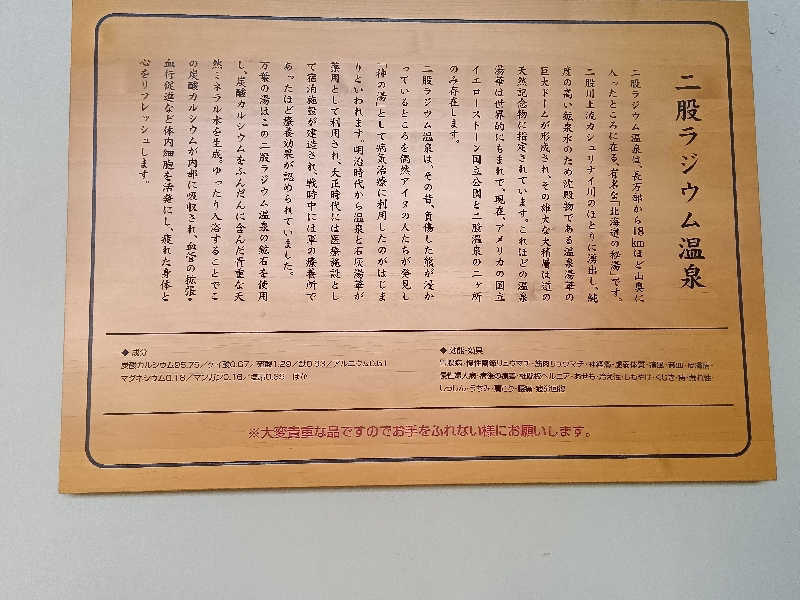 二股ラジウム温泉
二股ラジウム温泉は、長万部から18kmほど山奥に
入ったところに在る、有名な「北海道の秘湯」です。
二股川上流カシュリナイ川のほとりに湧出し、純
度の高い鉱泉水のため沈殿物である温泉湯華の
巨大ドームが形成され、その雄大な大積層は道の
天然記念物に指定されています。これほどの温泉
湯華は世界的にもまれで、現在、アメリカの国立
イエローストーン国立公園と二股温泉の二ヶ所
のみ存在します。
二股ラジウム温泉は、その昔、負傷した熊が浸か
っているところを偶然アイヌの人たちが発見し
「神の湯」として病気治療に利用したのがはじま
りといわれます。明治時代から温泉と石灰湯華が
薬用として利用され、大正時代には医療施設とし
て宿泊施設が建造され、戦時中には軍の療養所で
あったほど療養効果が認められていました。
万葉の湯はこの二股ラジウム温泉の鉱石を使用
し、炭酸カルシウムをふんだんに含んだ貴重な天
然ミネラル水を生成。ゆったり入浴することでこ
の炭酸カルシウムが内部に吸収され、血管の拡張・
血行促進など体内細胞を活発にし、疲れた身体と
心をリフレッシュします。
◆成分
炭酸カルシウム95.75／ケイ酸0.67／
マグネシウム0.18／マンガン0.16／
◆効能・効果
※大変貴重な品ですのでお手をふれない様にお願いします。